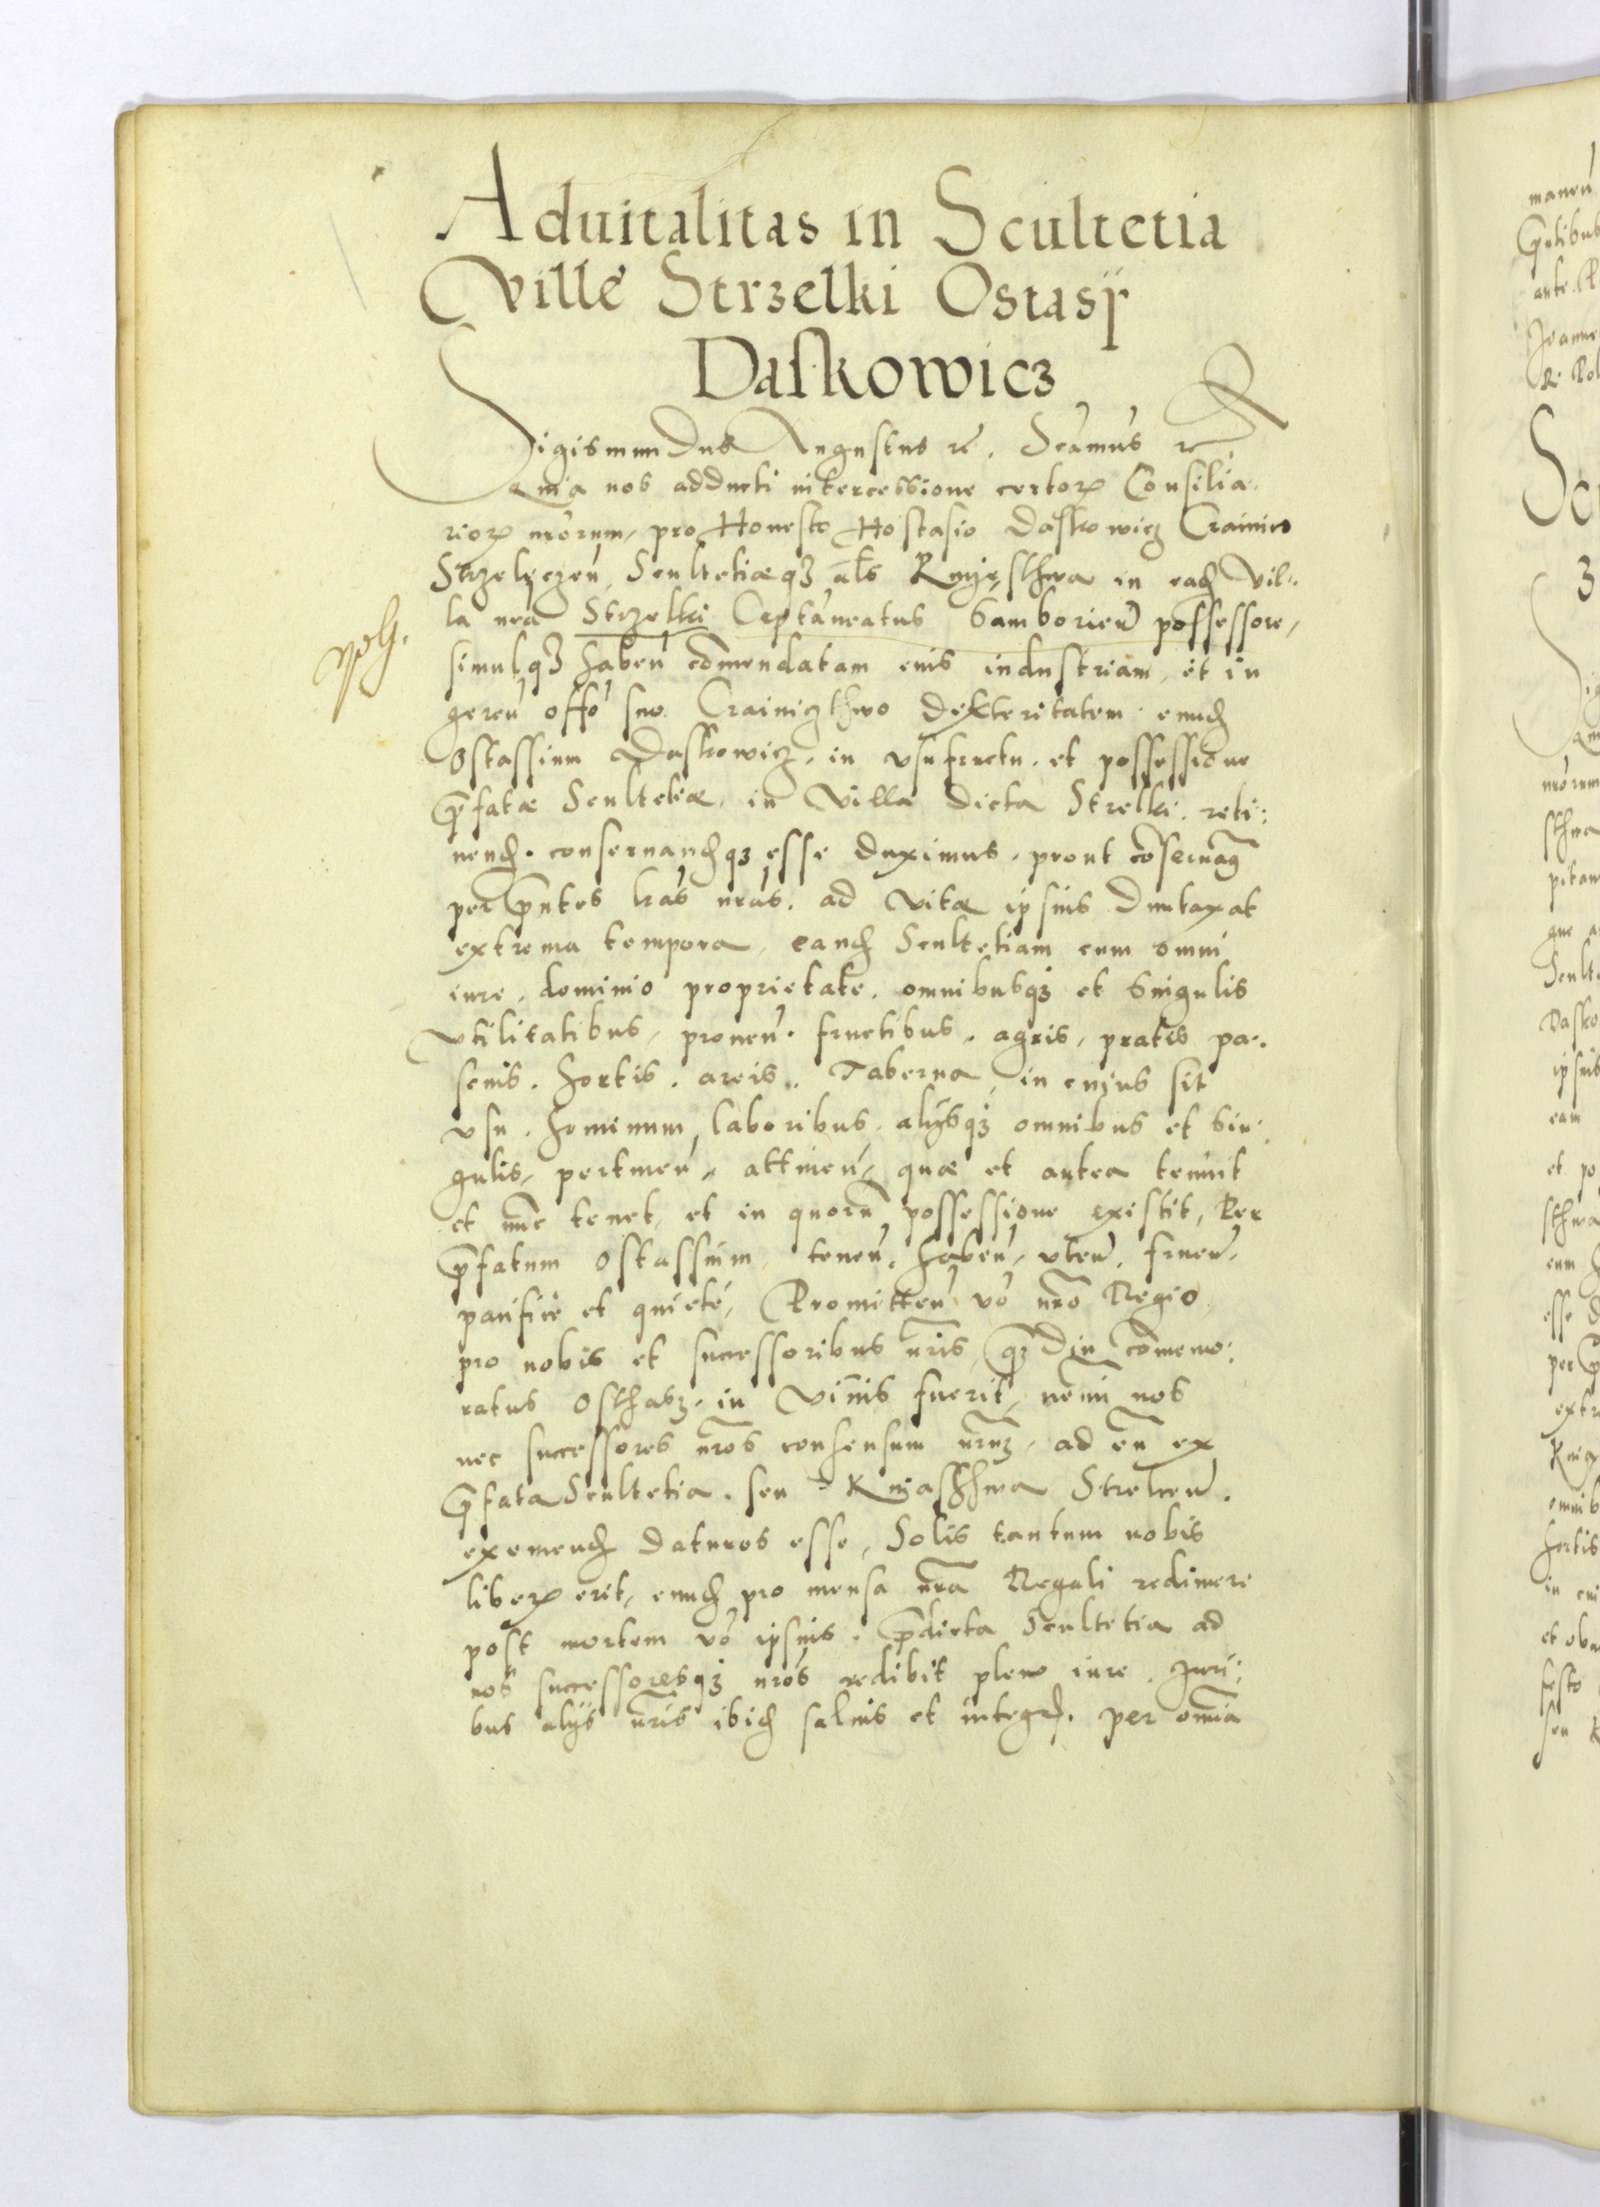 Aduitalitas in Scultetia
Ville Strzelki Ostasij
Daskowicz
Sigismundus Augustus rẽ. Seamus rẽ
Quia nos adducti intercessione certorꝝ Consilia
riorꝝ nrorum, pro Honesto Hostasio Daskowicz Crainico
Strzelyczen̄, Scultetiæqꝫ als Knyesthwa in ead vil:
la nra Strzelki Captaneatus Samborien̄ possessore,
simulqꝫ haben̄ cōmendatam eius industriam, et in
geren̄ offo suo Crainiczthwo dexteritatem eund
Ostassium Daskowicz, in vsufructu et possessione
p̄fatæ Scultetiæ, in villa dicta Strelki reti:
nend. conseruandqꝫ esse duximus, prout cōseruam9
per p̄ntes lras nras. ad vitæ ipsius duntaxat
extrema tempora, eand Scultetiam cum omni
iure, dominio proprietate. omnibusqꝫ et singulis
vtilitatibus, prouen̄. fructibus, agris, pratis pa:
scuis. hortis. areis. Taberna, in cuius sit
vsu. hominum laboribus. alysqꝫ omnibus et sin:
gulis, pertinen̄, attinen̄, quæ et antea tenuit
et nūc tenet, et in quorū possessione existit, Per
p̄fatum Ostassium tenen̄. haben̄, vten̄. fruen̄.
pacifice et quiete, Promitten̄ vo nrō Regio
pro nobis et successoribus nr̄is, qꝫ diu cōmemo:
ratus Osthasz. in viuis fuerit, nemi nos
nec successores nr̄os consensum nr̄uꝫ, ad eū ex
p̄fata Scultetia. seu Knyasthwa Strelcen̄.
exemend daturos esse, Solis tantum nobis
liberꝝ erit, eund pro mensa nr̄a Regali redimere
post mortem vo ipsius. p̄dicta Scultetia ad
nos successoresqꝫ nros redibit pleno iure. Iuri:
bus alys nr̄is ibid saluis et integr. per omnia